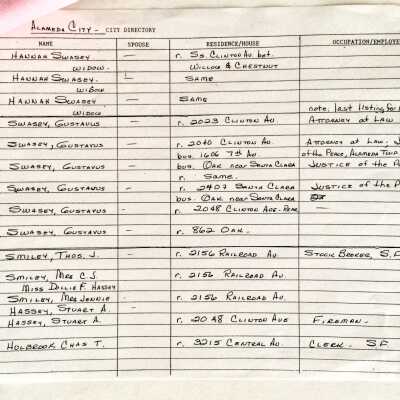 ALAMEDA CITY - CITY DIRECTORY
NAME SPOUSE RESIDENCE/HOUSE OCCUPATION/EMPLOYE
HANNAH SWASEY — r. Ss. CLINTON AV. bet.
WIDOW WILLOW & CHESTNUT
HANNAH SWASEY. SAME
WIDOW
HANNAH SWASEY — SAME
WIDOW note, last listing for
SWASEY, GUSTAVUS — r. 2023 CLINTON AV. ATTORNEY AT LAW
SWASEY, GUSTAVUS — r. 2040 CLINTON AV. ATTORNEY AT LAW. J
bus. 1606 7th AV. of the PEACE, ALAMEDA TWP.
SWASEY, GUSTAVUS — bus. OAK near SANTA CLARA JUSTICE of the P
r. SAME.
SWASEY, GUSTAVUS — r. 2407 SANTA CLARA JUSTICE of the P
bus. OAK near SANTA CLARA
SWASEY, GUSTAVUS — r. 2048 CLINTON AVE. REAR —
SWASEY, GUSTAVUS — r. 862 OAK.
SMILEY, THOS. J. — r. 2156 RAILROAD AV. STOCK BROKER, S.F.
SMILEY, MRS C J r. 2156 RAILROAD AV.
MISS DOLLIE F. HASSEY
SMILEY, MRS JENNIE - r. 2156 RAILROAD AV.
HASSEY, STUART A. —
HASSEY, STUART A. r. 2048 CLINTON AVE FIREMAN.
HOLBROOK CHAS T. r. 3215 CENTRAL AV. CLERK. SF